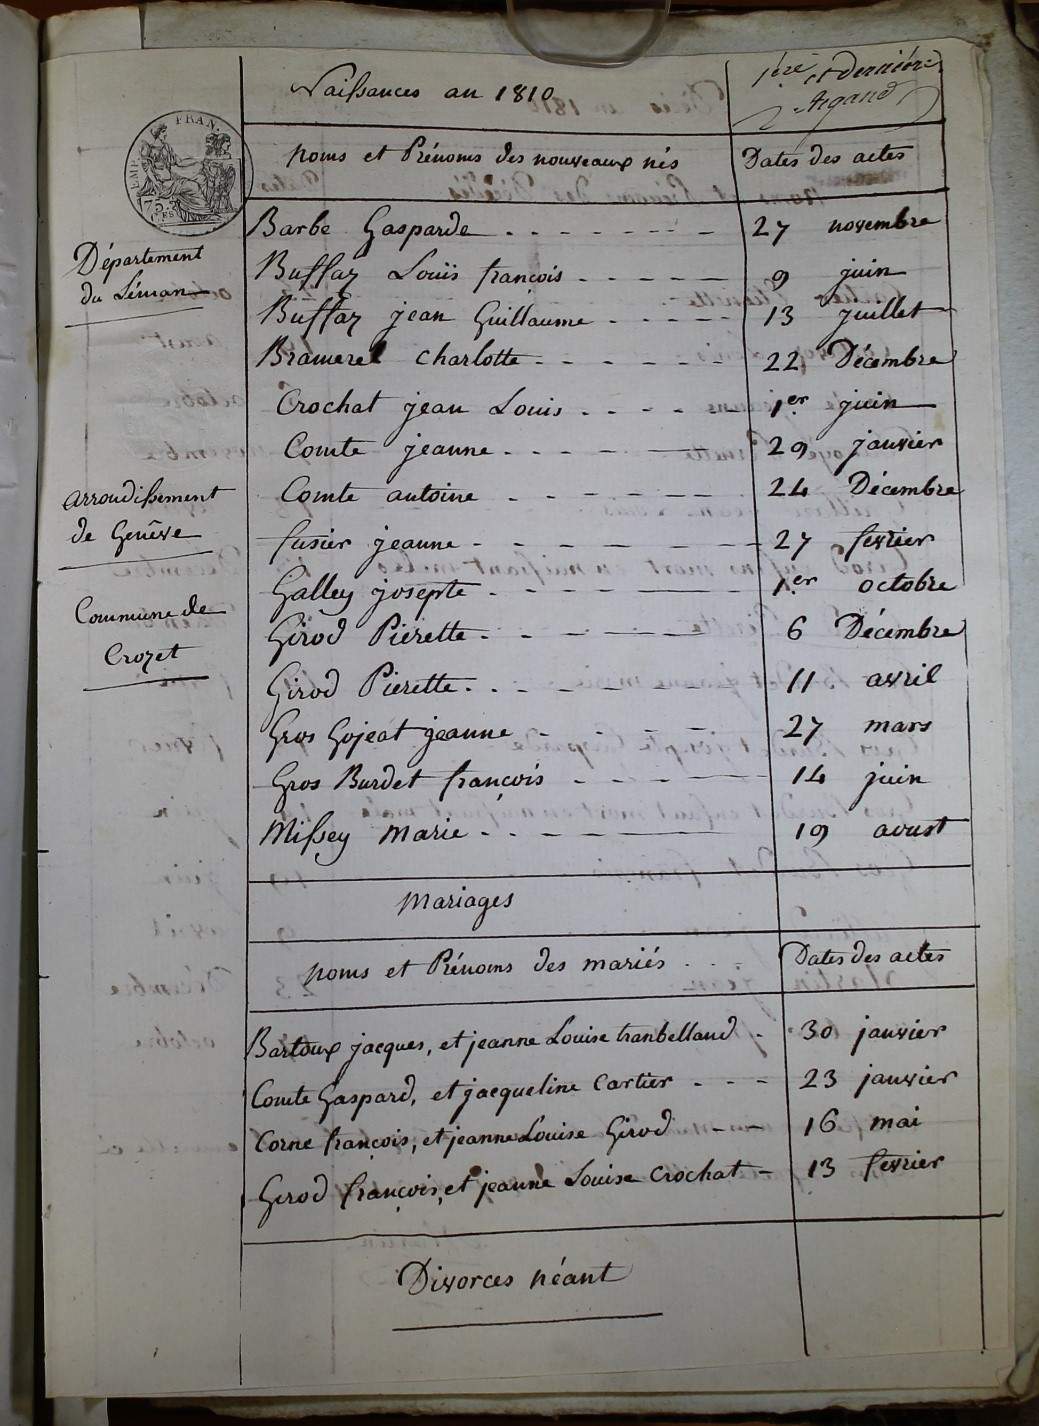 Naissances an 1810
1ère et dernière
Argand
EMP. FRAN.
75 C.
noms et Prénoms des nouveaux nés Dates des actes
Barbe Gasparde 27 novembre
Département
du Léman
Buffaz Louis françois 9 juin
Buffaz jean Guillaume 13 juillet
Bramerel charlotte 22 Décembre
Crochat jean Louis 1er juin
Comte jeanne 29 janvier
arrondissement
de Genève
Comte antoine 24 Décembre
fusier jeanne 27 fevrier
Galley josepte 1er octobre
Commune de
Crozet
Girod Pierette 6 Décembre
Girod Pierette 11 avril
Gros Gojeat jeanne 27 mars
Gros Burdet françois 14 juin
Missey marie 19 aoust
mariages
noms et Prénoms des mariés Dates des actes
Bartoux jacques, et jeanne Louise tranbelland 30 janvier
Comte Gaspard, et jacqueline Cartier 23 janvier
Corne françois, et jeanne Louise Girod 16 mai
Girod françois, et jeanne Louise Crochat 13 fevrier
Divorces néant